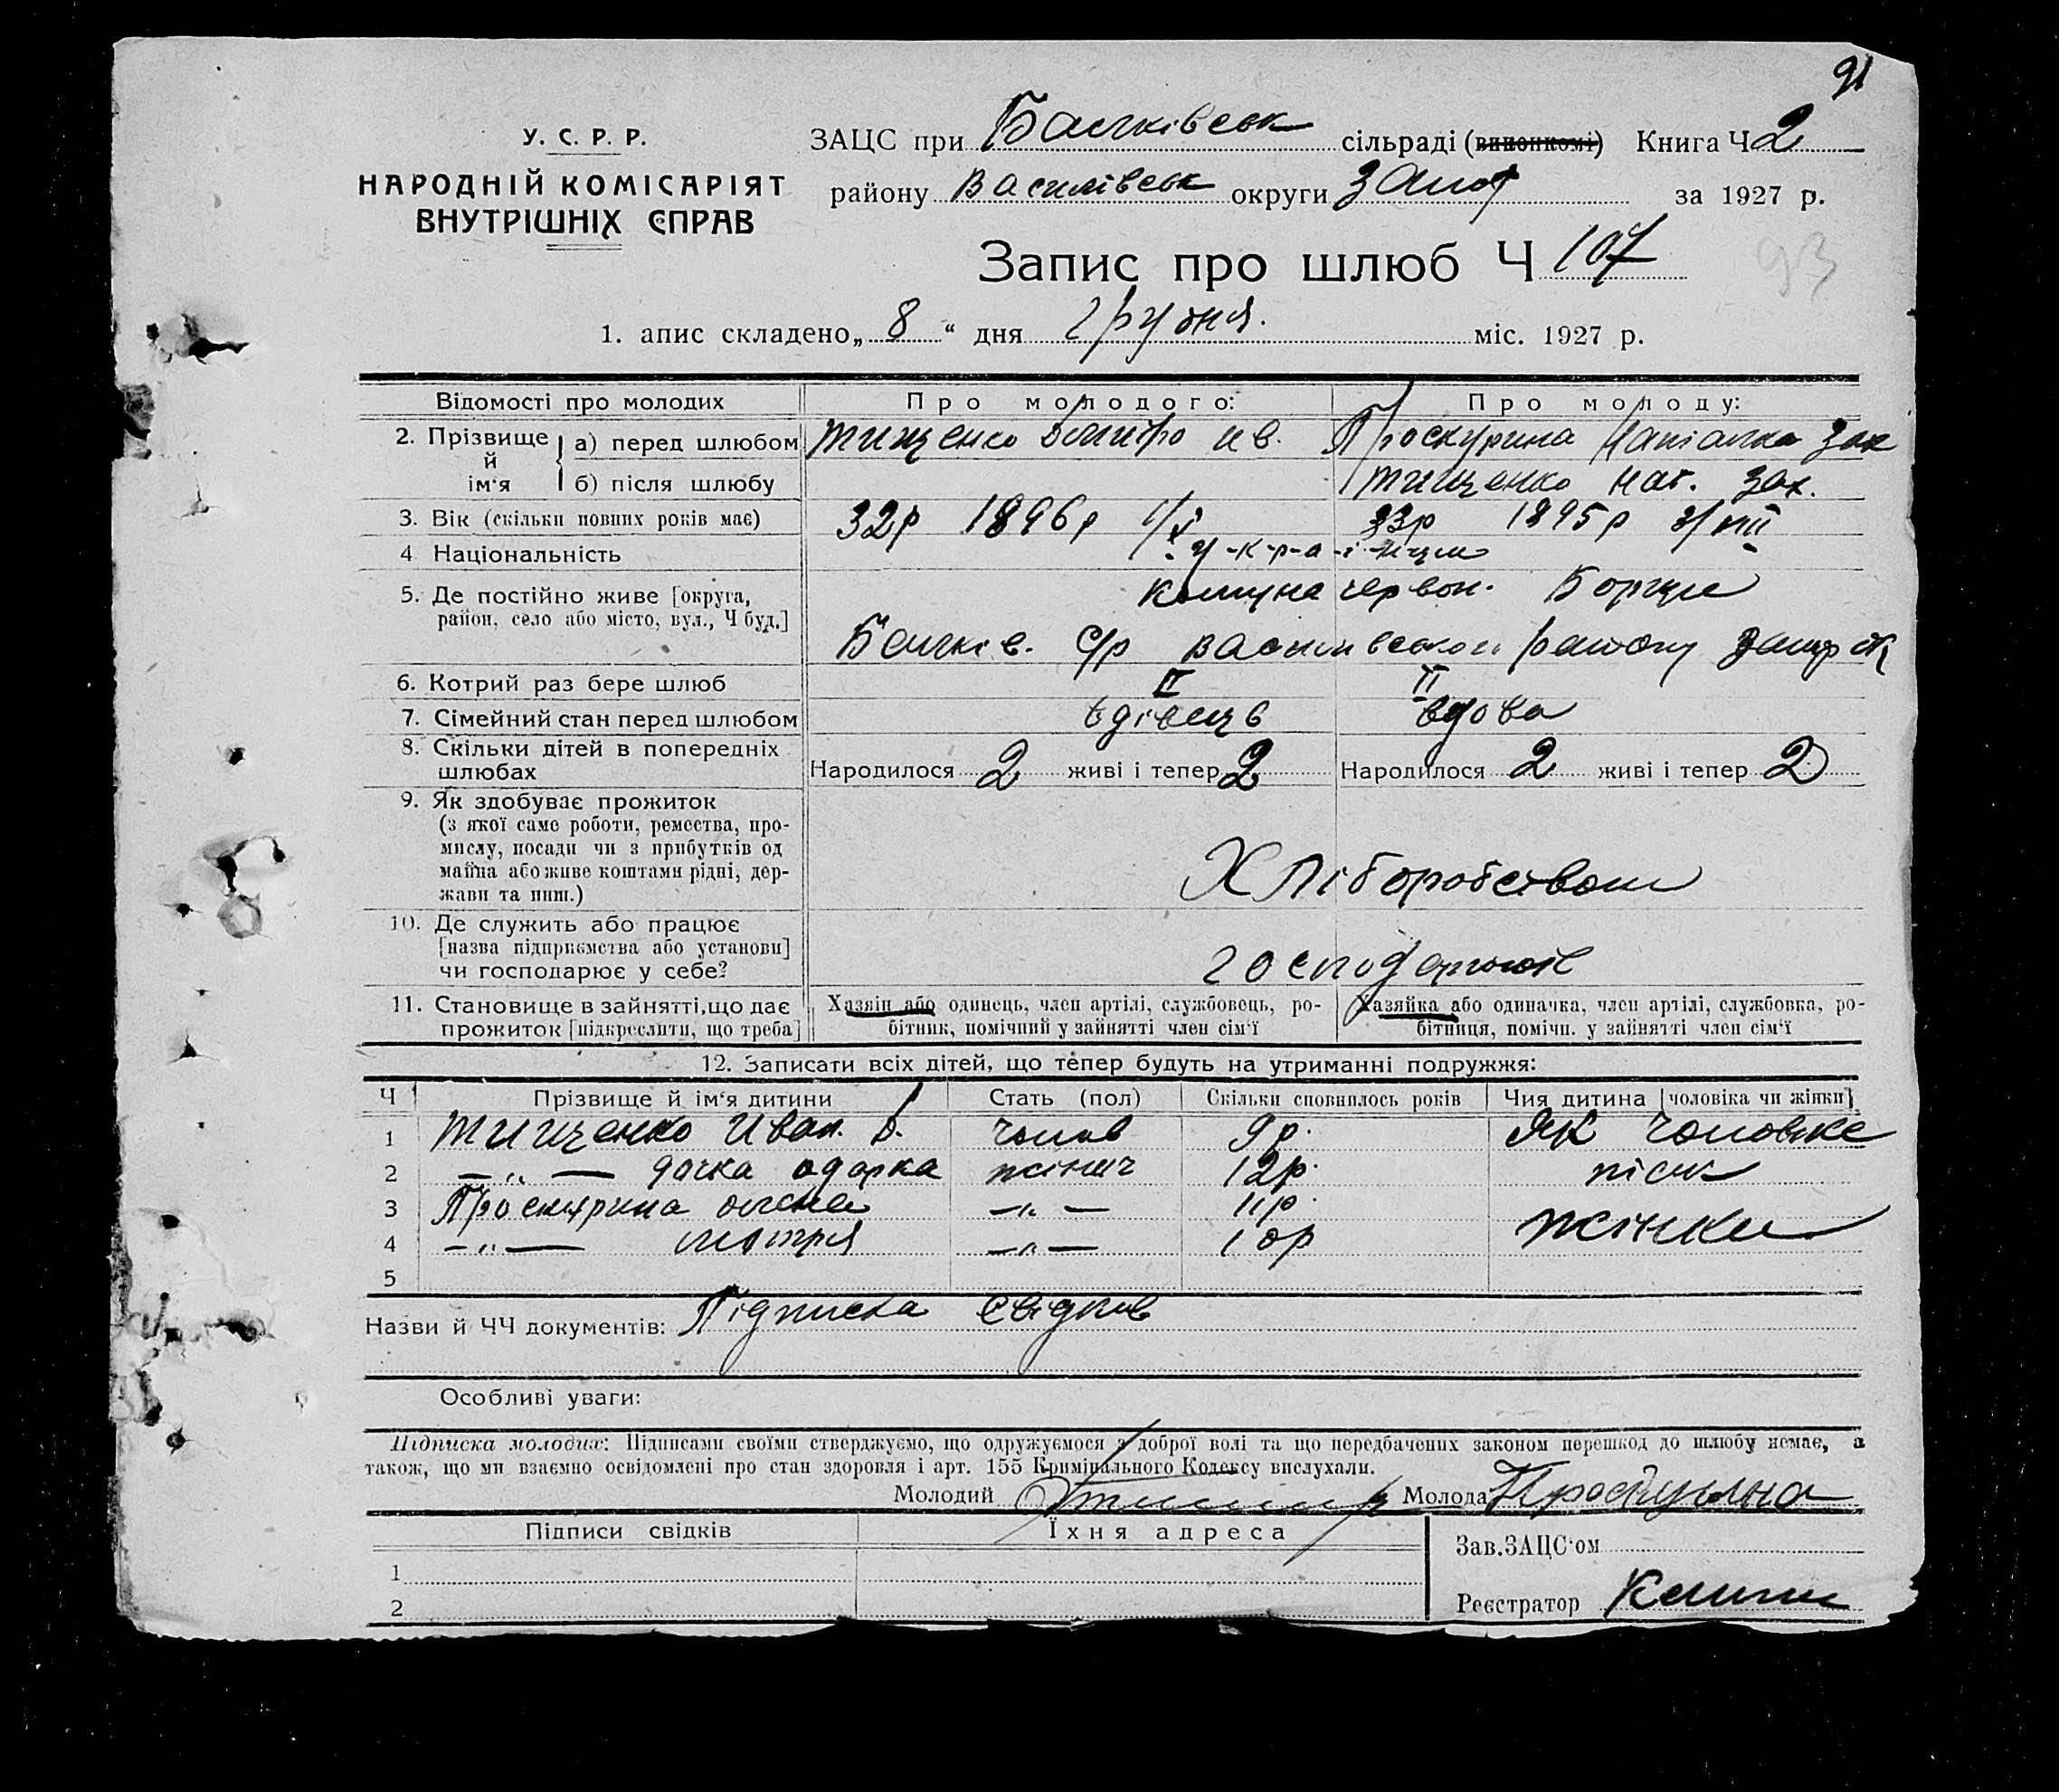 91
У. С. Р. Р.
НАРОДНІЙ КОМІСАРІЯТ
ВНУТРІШНІХ СПРАВ
ЗАЦС при Балківськ сільраді (виконкомі) Книга Ч 2
району Василівськ округи Запор за 1927 р.
Запис про шлюб Ч 107
93
1. апис складено „ 8 “ дня грудня. міс. 1927 р.
Відомості про молодих
Про молодого:
Про молоду:
2. Прізвище й ім‘я
а) перед шлюбом
Тищенко Дмитро Ив.
Проскурина Наталка Зах
б) після шлюбу
Тищенко Нат. Зах.
3. Вік (скільки повних років має)
32р 1896р
33р 1895р 3/VIII
4 Національність
у-к-р-а-і-нци
5. Де постійно живе [округа,
район, село або місто, вул., Ч буд.]
Комуна червон. Борци
Балків. с/р Василівського району
6. Котрий раз бере шлюб
II
II
7. Сімейний стан перед шлюбом
вдівець
вдова
8. Скільки дітей в попередніх
шлюбах
Народилося 2 живі і тепер 2
Народилося 2 живі і тепер 2
9. Як здобуває прожиток
(з якої саме роботи, ремества, про-
мислу, посади чи з прибутків од
майна або живе коштами рідні, дер-
жави та инш.)
Хліборобством
10. Де служить або працює
[назва підприємства або установи]
чи господарює у себе?
11. Становище в зайнятті, що дає
прожиток [підкреслити, що треба]
Хазяїн або одинець, член артілі, службовець, ро-
бітник, помічний у зайнятті член сім‘ї
Хазяйка або одиначка, член артілі, службовка, ро-
бітниця, помічн. у зайнятті член сім‘ї
12. Записати всіх дітей, що тепер будуть на утриманні подружжя:
Ч
Прізвище й ім‘я дитини
Стать (пол)
Скільки сповнилось років
Чия дитина [чоловіка чи жінки]
1 Тищенко Иван. Д. чолов 9р.
2 —„— дочка одарка жіноч 12р.
3 Проскурина олена —„— 11р
4 —„— мотря —„— 10р жінки
5
Назви й ЧЧ документів: Підписка свідків
Особливі уваги:
Підписка молодих: Підписами своїми стверджуємо, що одружуємося з доброї волі та що передбачених законом перешкод до шлюбу немає, а
також, що ми взаємно освідомлені про стан здоровля і арт. 155 Кримінального Кодексу вислухали.
Молодий
Молода
Підписи свідків
Їхня адреса
Зав. ЗАЦС‘ом
1
2
Реєстратор